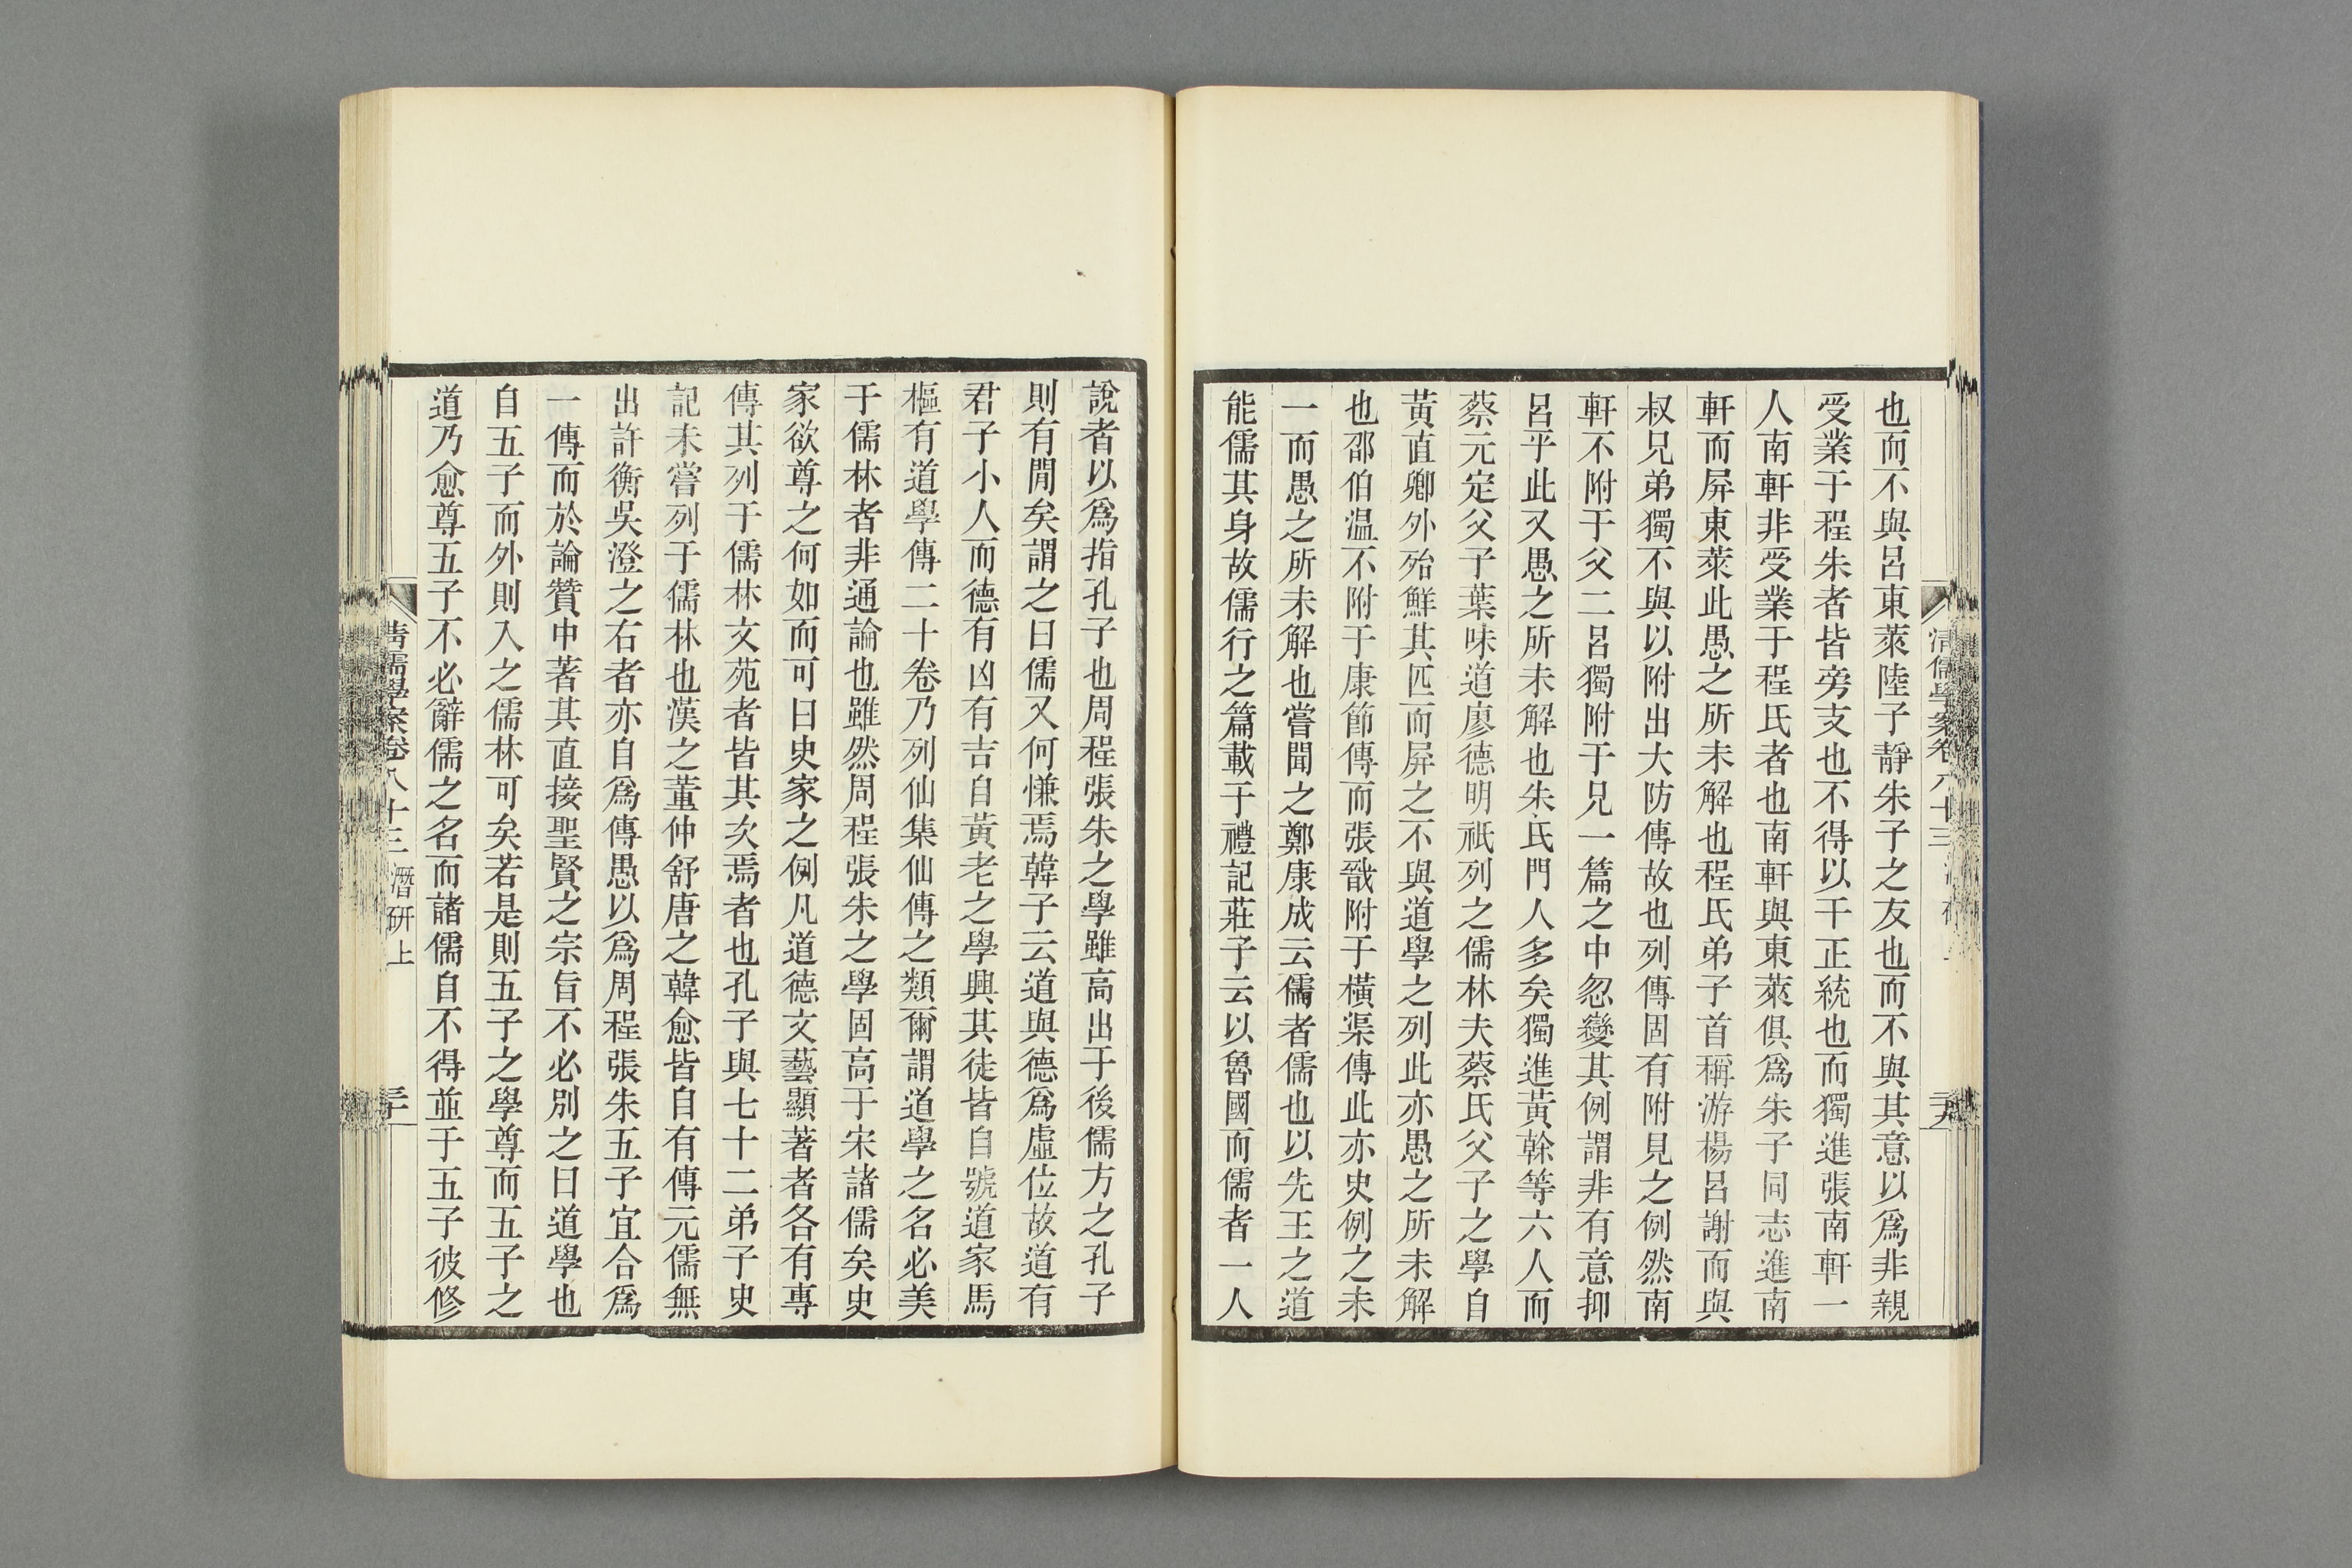 清儒學案卷八十三
也而不與呂東萊陸子靜朱子之友也而不與其意以爲非親
受業于程朱者皆旁支也不得以干正統也而獨進張南軒一
人南軒非受業于程氏者也南軒與東萊俱爲朱子同志進南
軒而屏東萊此愚之所未解也程氏弟子首稱游楊呂謝而與
叔兄弟獨不與以附出大防傳故也列傳固有附見之例然南
軒不附于父二呂獨附于兄一篇之中忽變其例謂非有意抑
呂乎此又愚之所未解也朱氏門人多矣獨進黃榦等六人而
蔡元定父子葉味道廖德明祇列之儒林夫蔡氏父子之學自
黃直卿外殆鮮其匹而屏之不與道學之列此亦愚之所未解
也邵伯温不附于康節傳而張戩附于橫渠傳此亦史例之未
一而愚之所未解也嘗聞之鄭康成云儒者儒也以先王之道
能儒其身故儒行之篇載于禮記莊子云以魯國而儒者一人
說者以爲指孔子也周程張朱之學雖高出于後儒方之孔子
則有閒矣謂之曰儒又何慊焉韓子云道與德爲虛位故道有
君子小人而德有凶有吉自黃老之學興其徒皆自號道家馬
樞有道學傳二十卷乃列仙集仙傳之類爾謂道學之名必美
于儒林者非通論也雖然周程張朱之學固高于宋諸儒矣史
家欲尊之何如而可曰史家之例凡道德文藝顯著者各有專
傳其列于儒林文苑者皆其次焉者也孔子與七十二弟子史
記未嘗列于儒林也漢之董仲舒唐之韓愈皆自有傳元儒無
出許衡吳澄之右者亦自爲傳愚以爲周程張朱五子宜合爲
一傳而於論贊中著其直接聖賢之宗旨不必別之曰道學也
自五子而外則入之儒林可矣若是則五子之學尊而五子之
道乃愈尊五子不必辭儒之名而諸儒自不得並于五子彼修
清儒學案卷八十三 潛研上